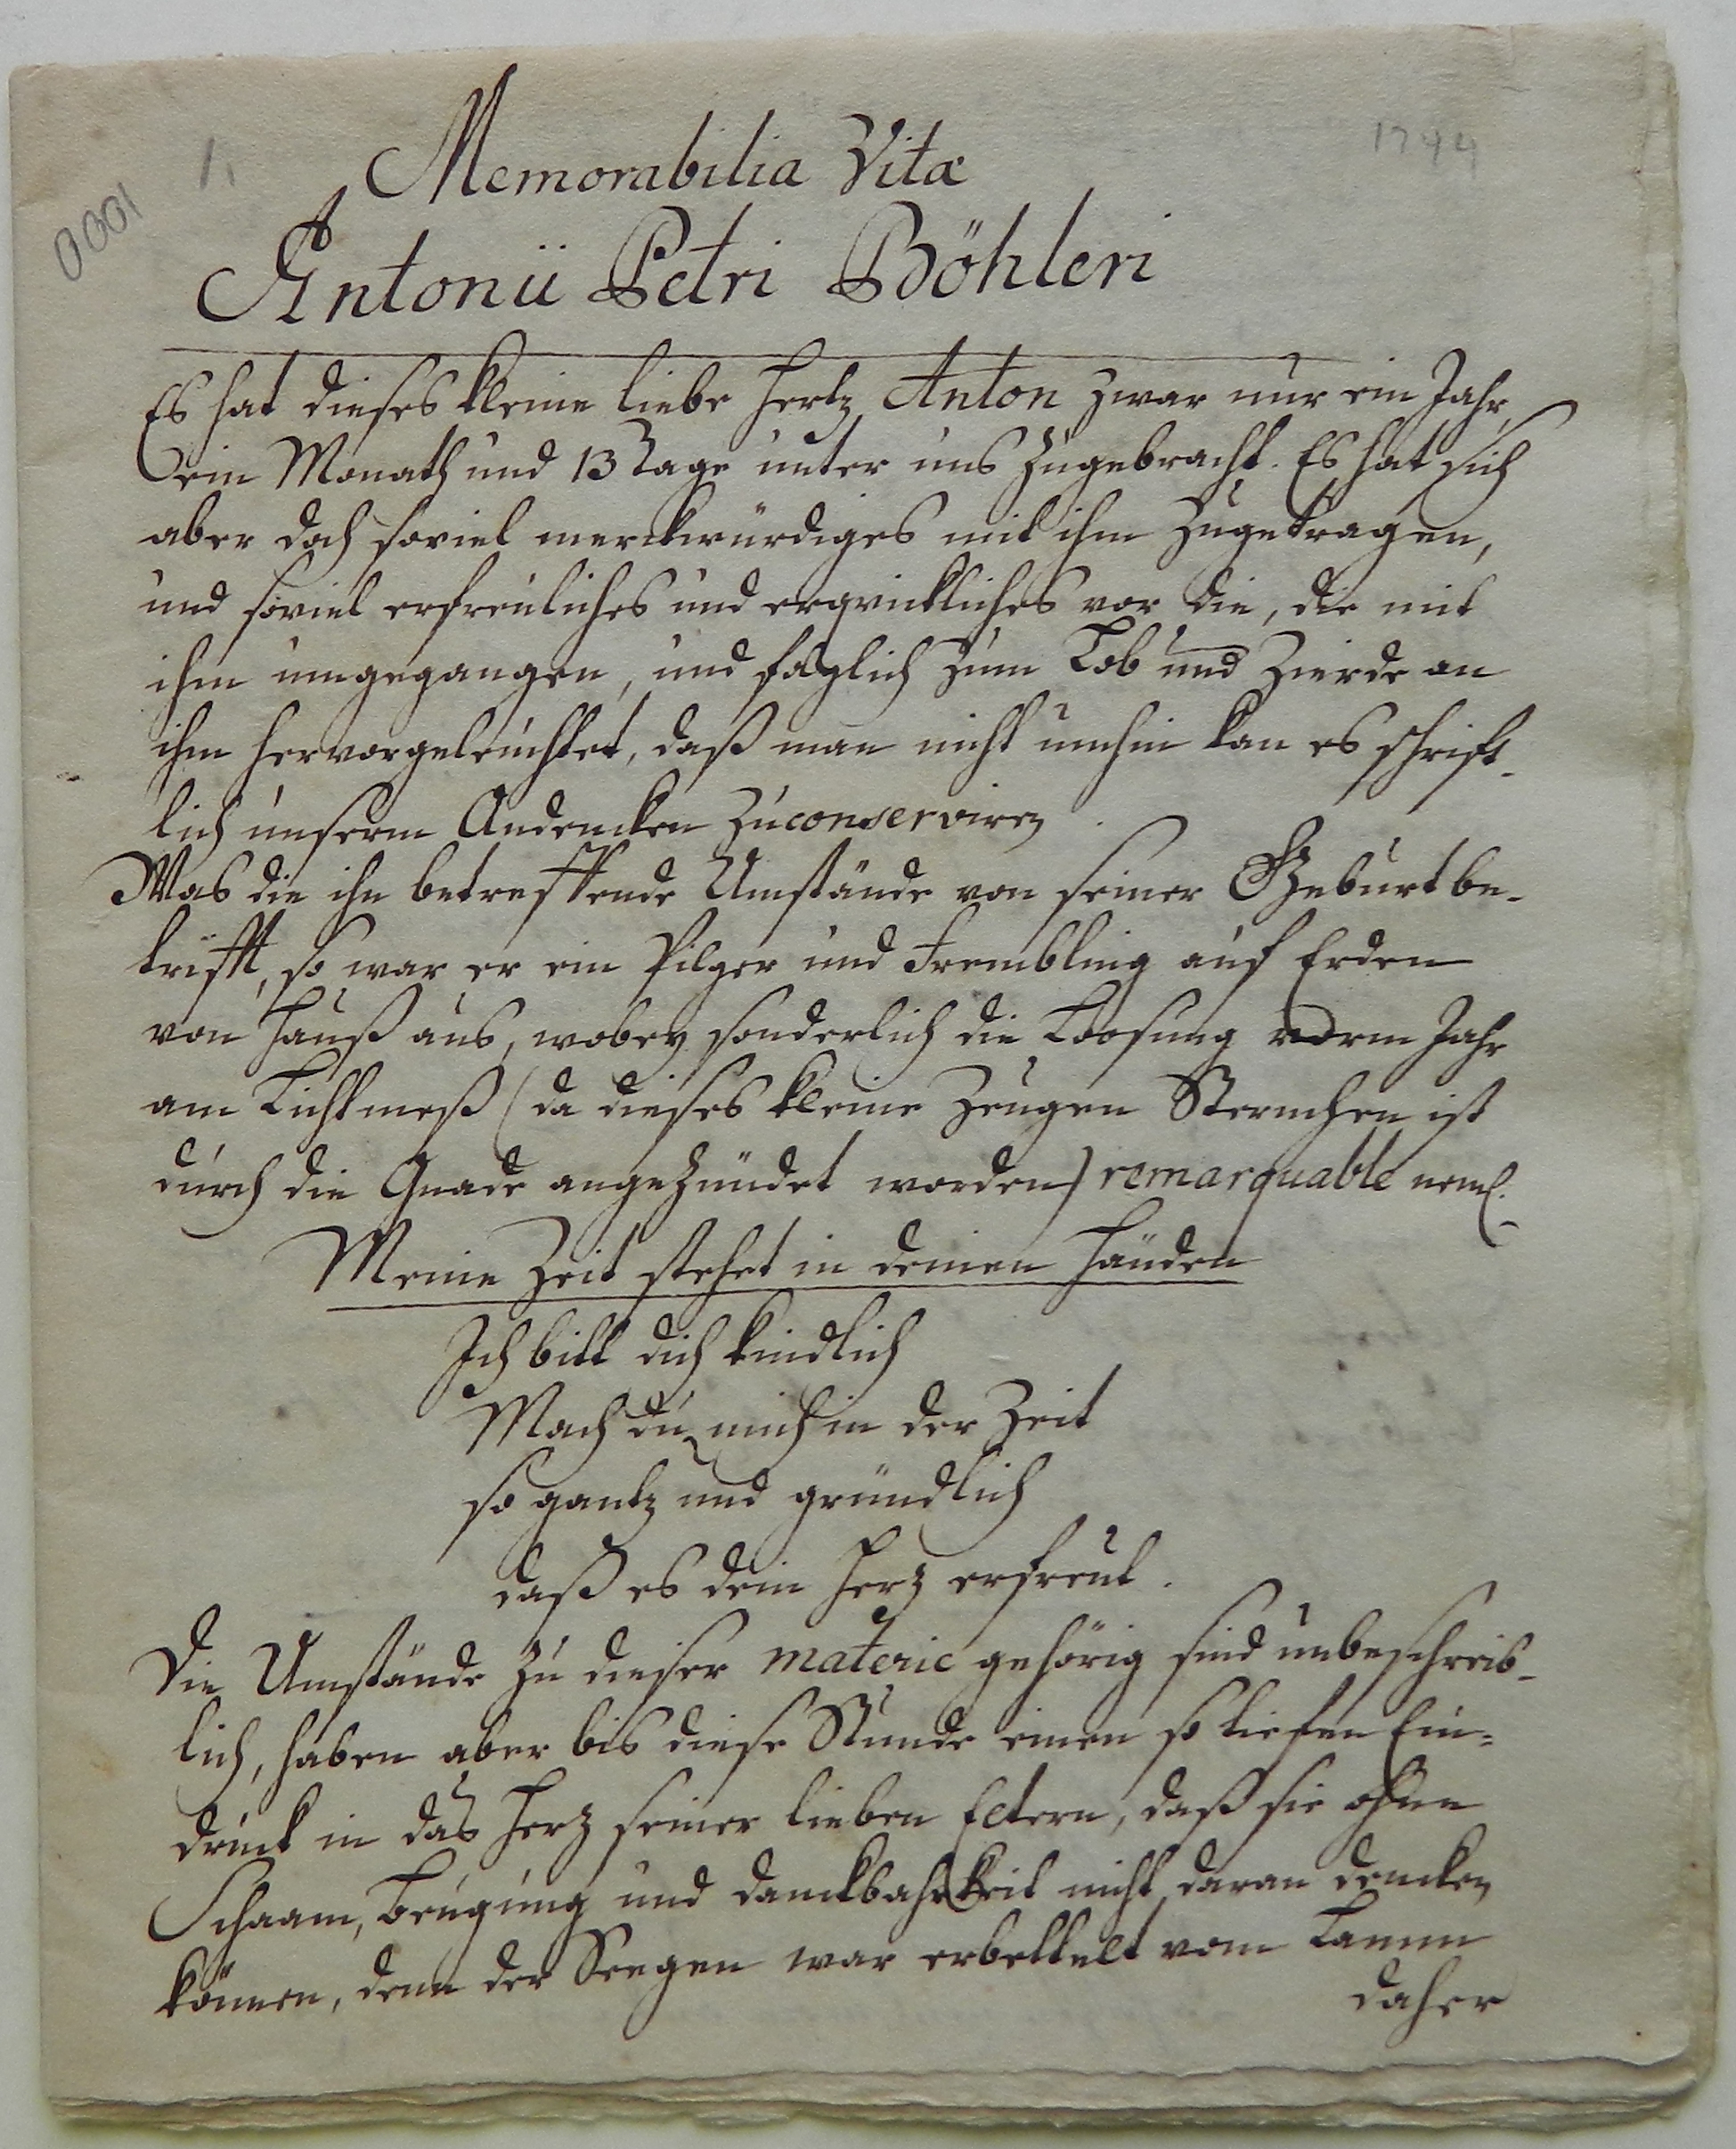 0001
1,
1744
Memorabilia Vitæ
Antonii Petri Böhleri
Es hat dieses kleine liebe Hertz Anton zwar nur ein Jahr,
ein Monath und 13 Tage unter uns zugebracht. Es hat sich
aber doch soviel merckwürdiges mit ihm zugetragen,
und soviel erfreuliches und erquickliches vor die, die mit
ihm umgegangen, und folglich zum Lob und Zierde an
ihm hervorgeleuchtet, daß man nicht umhin kan es schrift-
lich unserm Andencken zu conserviren.
Was die ihn betreffende Umstände von seiner Geburt be-
trifft, so war er ein Pilger und Frembling auf Erden
von Hauß aus, wobey sonderlich die Loosung vorm Jahr
am Lichtmeß (da dieses kleine Zeugen Sternchen ist
durch die Gnade angezündet worden) remarquable neml.
Meine Zeit stehet in deinen Händen
Ich bitt dich kindlich
Mach du mich in der Zeit
so gantz und gründlich
daß es dein Herz erfreut.
Die Umstände zu dieser materie gehörig sind unbeschreib-
lich, haben aber bis diese Stunde einen so tiefen Ein-
druck in das Herz seiner lieben Eltern, daß sie ohne
Schaam, Beugung und Danckbahrkeit nicht daran dencken
können, denn der Seegen war erbettelt vom Lamm
daher